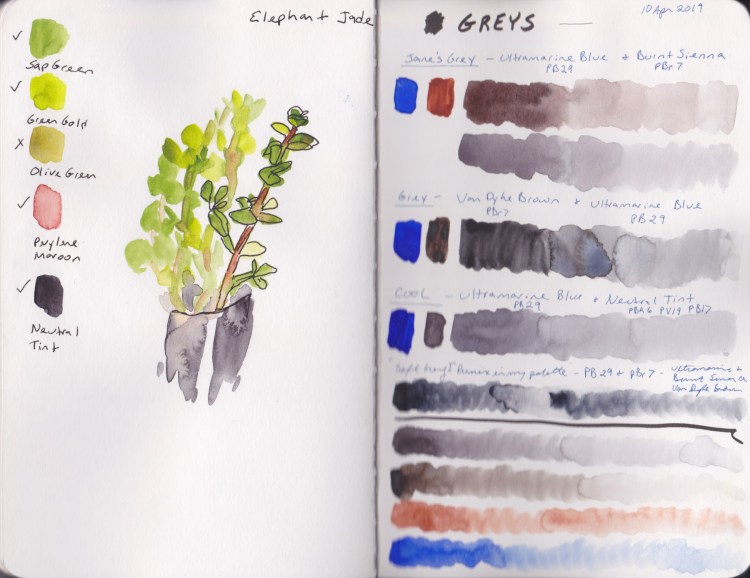 Elephant Jade
✓
Sap Green
✓
Green Gold
x
Olive Green
✓
Perylene
Maroon
✓
Neutral
Tint
10 Apr 2019
GREYS —
Jane's Grey - Ultramarine Blue + Burnt Sienna
PB29 PBr7
Grey - Van Dyke Brown + Ultramarine Blue
PBr7 PB29
COOL - Ultramarine Blue + Neutral Tint
PB29 PBk6 PV19 PB15
Grey" in my palette - PB29 + PBr7 - Ultramarine +
Burnt Sienna or
Van Dyke Brown